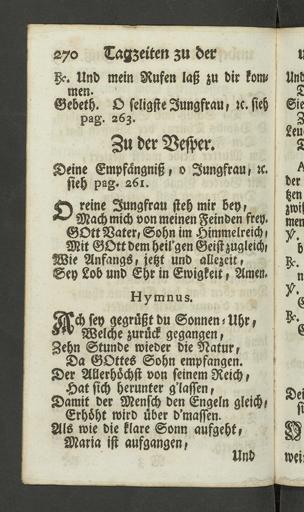 270 Tagzeiten zu der
℟. Und mein Rufen laß zu dir kom-
men.
Gebeth. O seligste Jungfrau, ꝛc. sieh
pag. 263.
Zu der Vesper.
Deine Empfängniß, o Jungfrau, ꝛc.
sieh pag. 261.
O reine Jungfrau steh mir bey,
Mach mich von meinen Feinden frey.
GOtt Vater, Sohn im Himmelreich,
Mit GOtt dem heil'gen Geist zugleich,
Wie Anfangs, jetzt und allezeit,
Sey Lob und Ehr in Ewigkeit, Amen.
Hymnus.
Ach sey gegrüßt du Sonnen-Uhr,
Welche zurück gegangen,
Zehn Stunde wieder die Natur,
Da GOttes Sohn empfangen.
Der Allerhöchst von seinem Reich,
Hat sich herunter g'lassen,
Damit der Mensch den Engeln gleich,
Erhöht wird über d'massen.
Als wie die klare Sonn aufgeht,
Maria ist aufgangen,
Und